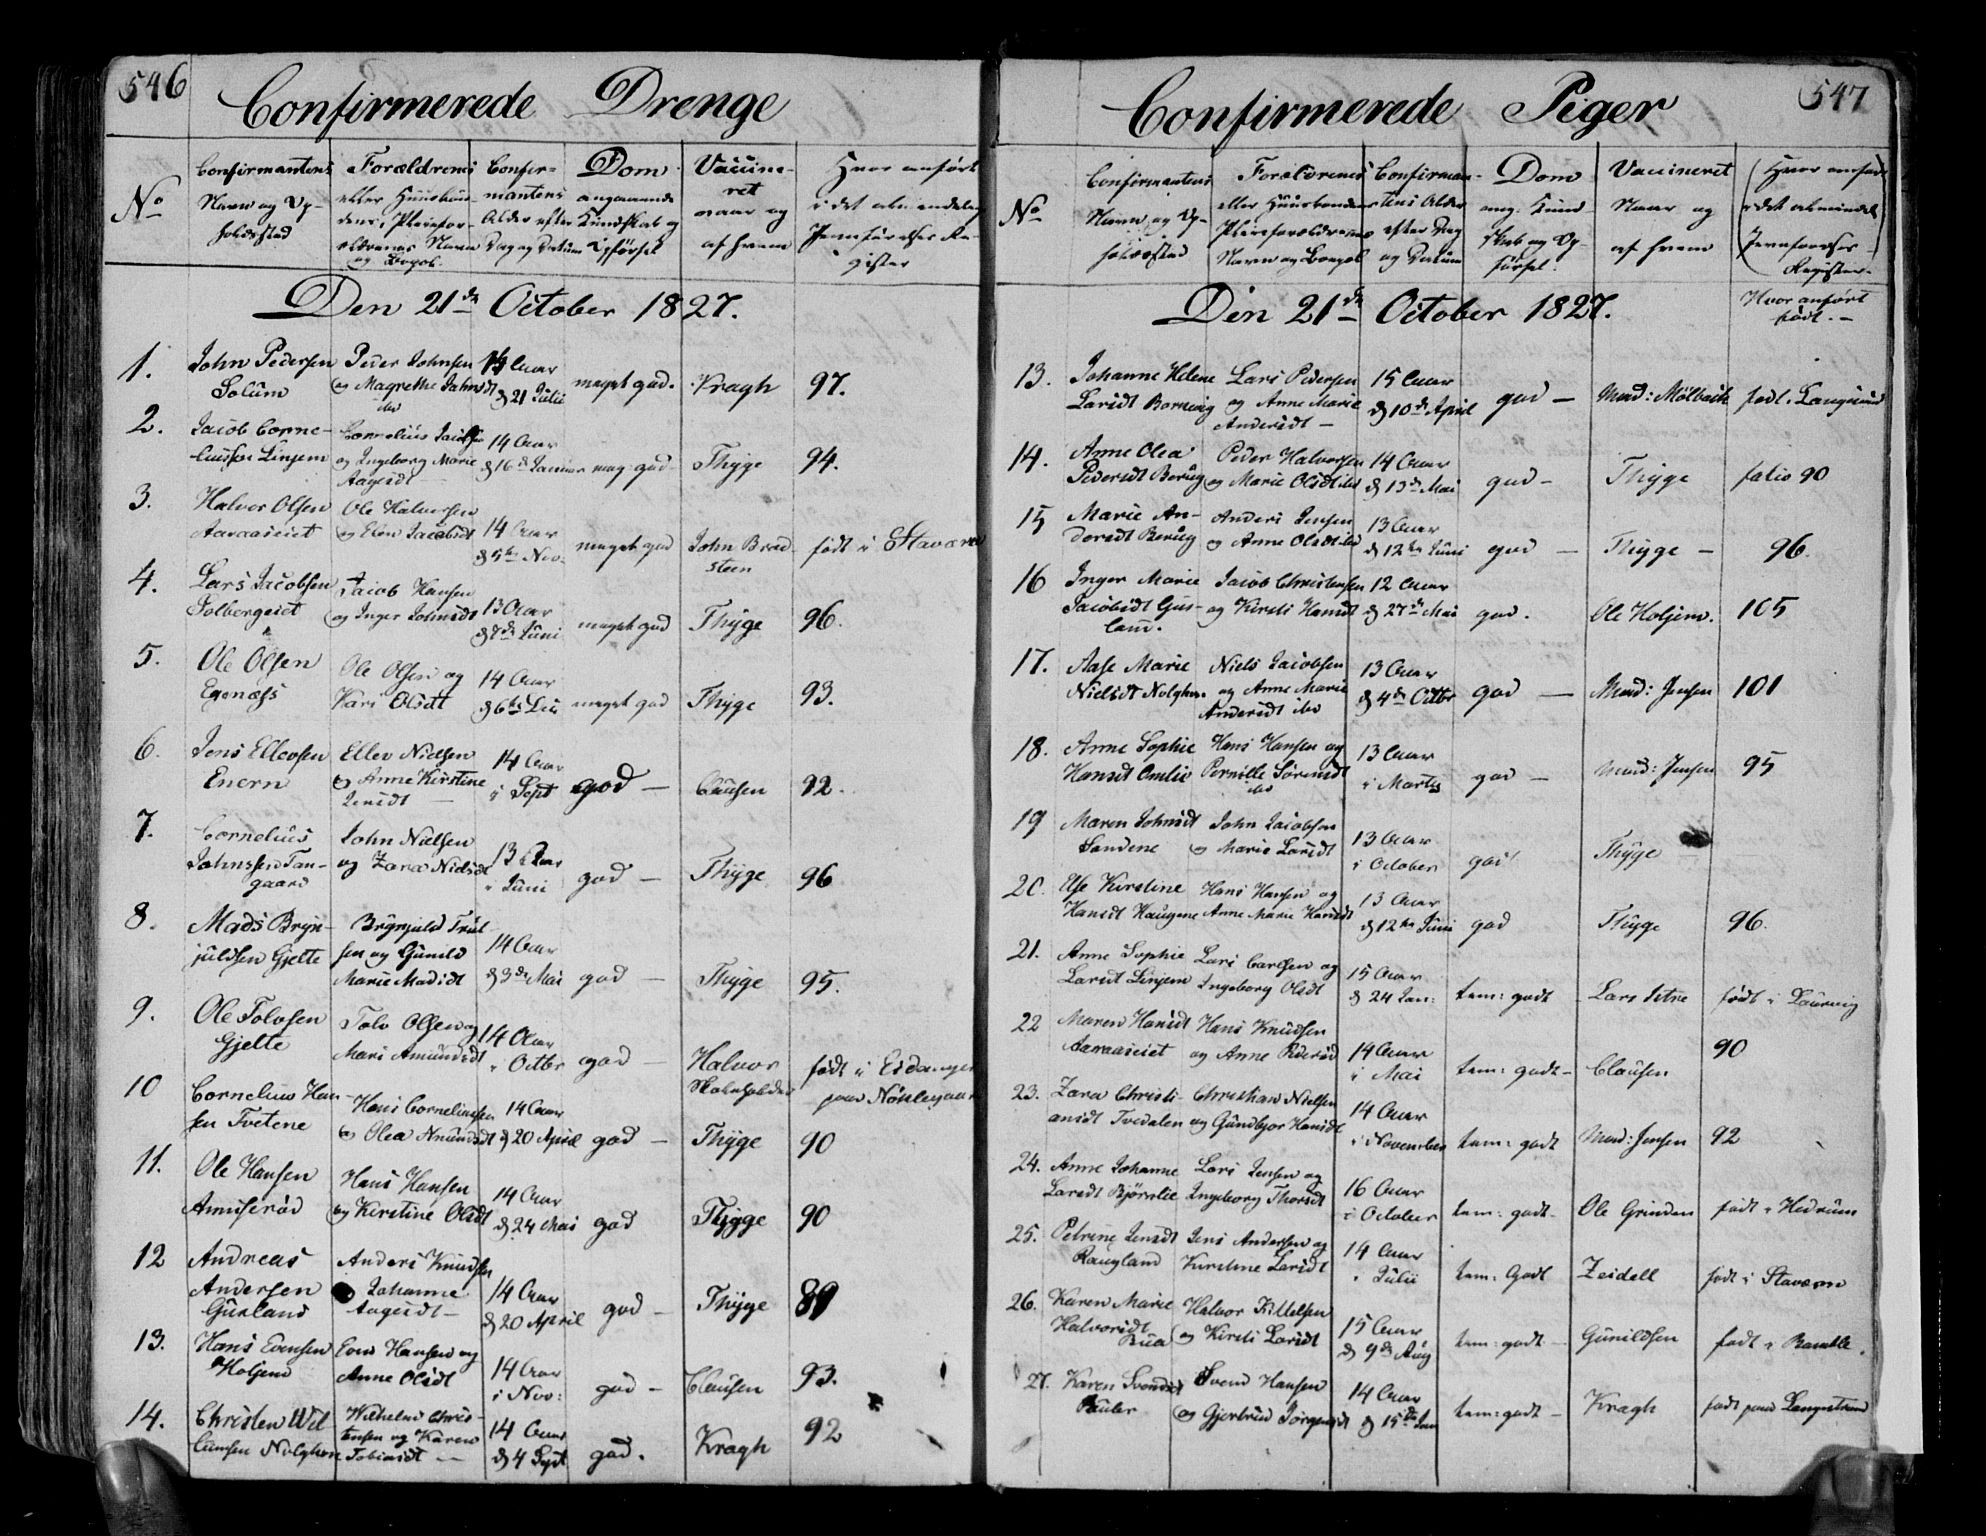 546
Confirmerede Drenge
No
Confirmantens
Navn og Op-
holdssted
Forældrenes
eller Huusbon-
dens, Pleiefor-
ældrenes Navn
og Bopæl
Confir-
mantens
Alder efter
Dag og Datum
Dom
angaaende
Kundskab og
Opførsel
Vaccine-
ret
naar og
af hvem
Hvor anført
i det almindelig
Jevnførelses Re-
gister
Den 21de October 1827.
1. John Pedersen Peder Johnsen 14 Aar
Solum og Magrethe Johnsdt d 21 Julii meget god. Kragh 97.
ibd
2. Jacob Corne- Cornelius Jacobsen 14 Aar
liussen Linjem og Ingeborg Marie d 16de Januar meg. god Thyge 94.
Aagesdt
3. Halvor Olsen Ole Halvorsen 14 Aar
Aaraaseiet og Elen Jacobsdt d 5te Nov. meget god John Bred- født i Staværn
steen
4. Lars Jacobsen Jacob Hansen 13 Aar
Solbergeiet og Inger Johnsdt d 7de Juni meget god Thyge 96.
5. Ole Olsen Ole Olsen og 14 Aar
Egenæss Kari Olsdt d 6te meget god Thyge 93.
6. Jens Ellevsen Ellev Nielsen 14 Aar
Enern og Anne Kirstine i Sept god — Clausen 92.
Jensdt —
7. Cornelius John Nielsen 13 Aar
Johnssen Tan- og Zara Nielsdt i Juni god — Thyge 96
gaard
8. Mads Bryn- Brynjuld Trul-
juldsen Gjelte sen og Gunild 14 Aar
Marie Madsdt d 3de Mai god — Thyge 95.
9. Ole Tolvsen Tolv Olsen og 14 Aar
Gjelte Mari Amundsdt i Octbr god — Halvor født i Eidanger
Skoleholder paa
10 Cornelius Han- Hans Corneliussen 14 Aar
sen Tvetene og Olea Knudsdt d 20 April god — Thyge 90
11. Ole Hansen Hans Hansen 14 Aar
Anniserød og Kirstine Olsdt d 24 Mai god Thyge 90
12 Andreas Anders Knudsen
Andersen Johanne 14 Aar
Gurland Aagesdt — d 20 April god — Thyge 89
13. Hans Evensen Even Hansen og 14 Aar
Holjem Anne Olsdt i Nov: god — Clausen 93.
14. Christen Wil Wilhelm Chris- 14 Aar
lumsen Nølghon tensen og Karen d 4 Sept god. Kragh 92
Tobiasdt —
547
Confirmerede Piger
No
Confirmantens
Navn og Op-
holdssted
Forældrenes
eller Huusbondens
Pleieforældrenes
Navn og Boepæl
Confirman-
tens Alder
efter Dag
og Datum
Dom
ang. Kund-
skab og Op-
førsel.
Vaccineret
Naar og
af hvem
Hvor anført
i det almindel.
Jevnførelses-
Register.
Den 21de October 1827.
Hvor anført
født. —
13. Johanne Helene Lars Pedersen 15 Aar
Larsdt Bornvig og Anne Marie d 10de April god — Mad: Mølbach født i Langesund
Andersdt —
14. Anne Olea Peder Halvorsen 14 Aar
Pedersdt Berüg og Marie Olsdt ibd d 13de Mai god — Thyge folio 90
15 Marie An- Anders Jensen 13 Aar
dersdt Berüg og Anne Olsdt ibd d 12te Juni god — Thyge — 96.
16 Inger Marie Jacob Christensen 12 Aar
Jacobsdt Gus- og Kirsti Hansdt d 27de Mai god. Ole Holjem. 105
land.
17. Aase Marie Niels Jacobsen 13 Aar
Nielsdt Nølghon og Anne Marie d 4de Octbr god — Mad: Jensen 101
Andersdt ibd
18. Anne Sophie Hans Hansen og 13 Aar
Hansdt Omlid Pernille Sørensdt i Marts god — Mad: Jensen 95
ibd
19 Maren Johnsdt John Jacobsen 13 Aar
Sandene og Marie Larsdt i October god Thyge —
20. Else Kirstine Hans Hansen og 13 Aar
Hansdt Haugene Anne Marie Hansdt d 12te Juni god Thyge 96.
21. Anne Sophie Lars Carlsen og 15 Aar
Larsdt Linjem Ingeborg Olsdt d 24 Jan: tem: godt Lars født i Laurvig
22 Maren Hansdt Hans Knudsen 14 Aar
Aaraaseiet og Anne Pedersd i Mai tem: godt — Clausen 90
23. Zara Christi- Christian Nielsen 14 Aar
ansdt Tvedalen og Gundbjor Hansdt i November tem: godt Mad: Jensen 92
24. Anne Johanne Lars Jensen og 16 Aar
Larsdt Bjørnlie Ingeborg Thorsdt i October tem: godt — Ole Grinden født i Hedrum
25. Petrine Jensdt Jens Andersen og 14 Aar
Raugland Kirstine Larsdt i Julii tem: Godt Zeidell født i Stavern
26. Karen Marie Halvor Kittelsen 15 Aar
Halvorsdt og Kirsti Larsdt d 9de Aug tem: godt — Gunildsen født i Bamble.
Rua
27. Karen Svendsd Svend Hansen 14 Aar
og Gjertrud Jørgensdt d 15de Jan tem: godt — Kragh født paa Langestrand